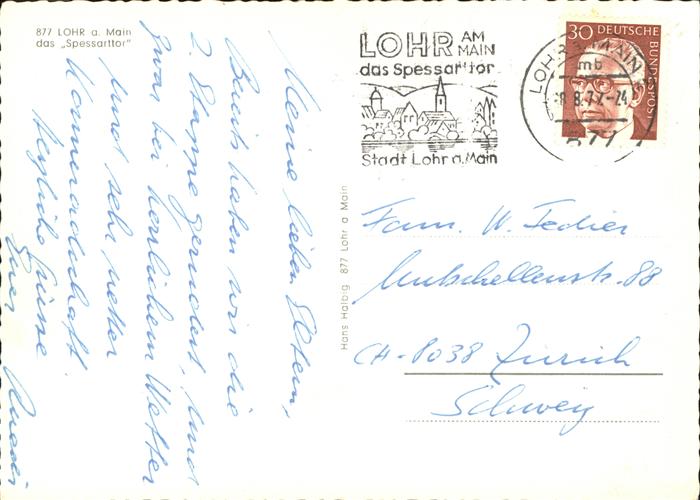 877 LOHR a. Main
das „Spessarttor"
LOHR AM MAIN
das Spessarttor
Stadt Lohr a. Main
30 DEUTSCHE BUNDESPOST
LOHR A MAIN
mb
8.8.72-24
877
Hans Halbig 877 Lohr a Main
Meine lieben Eltern,
haben wir die
2. Etappe gerudert. Und
zwar bei herrlichem Wetter
und sehr netter
Kameradschaft.
Herzliche Grüsse
Euer
Fam. W.
Mutschellenstr. 88
CH-8038 Zürich
Schweiz